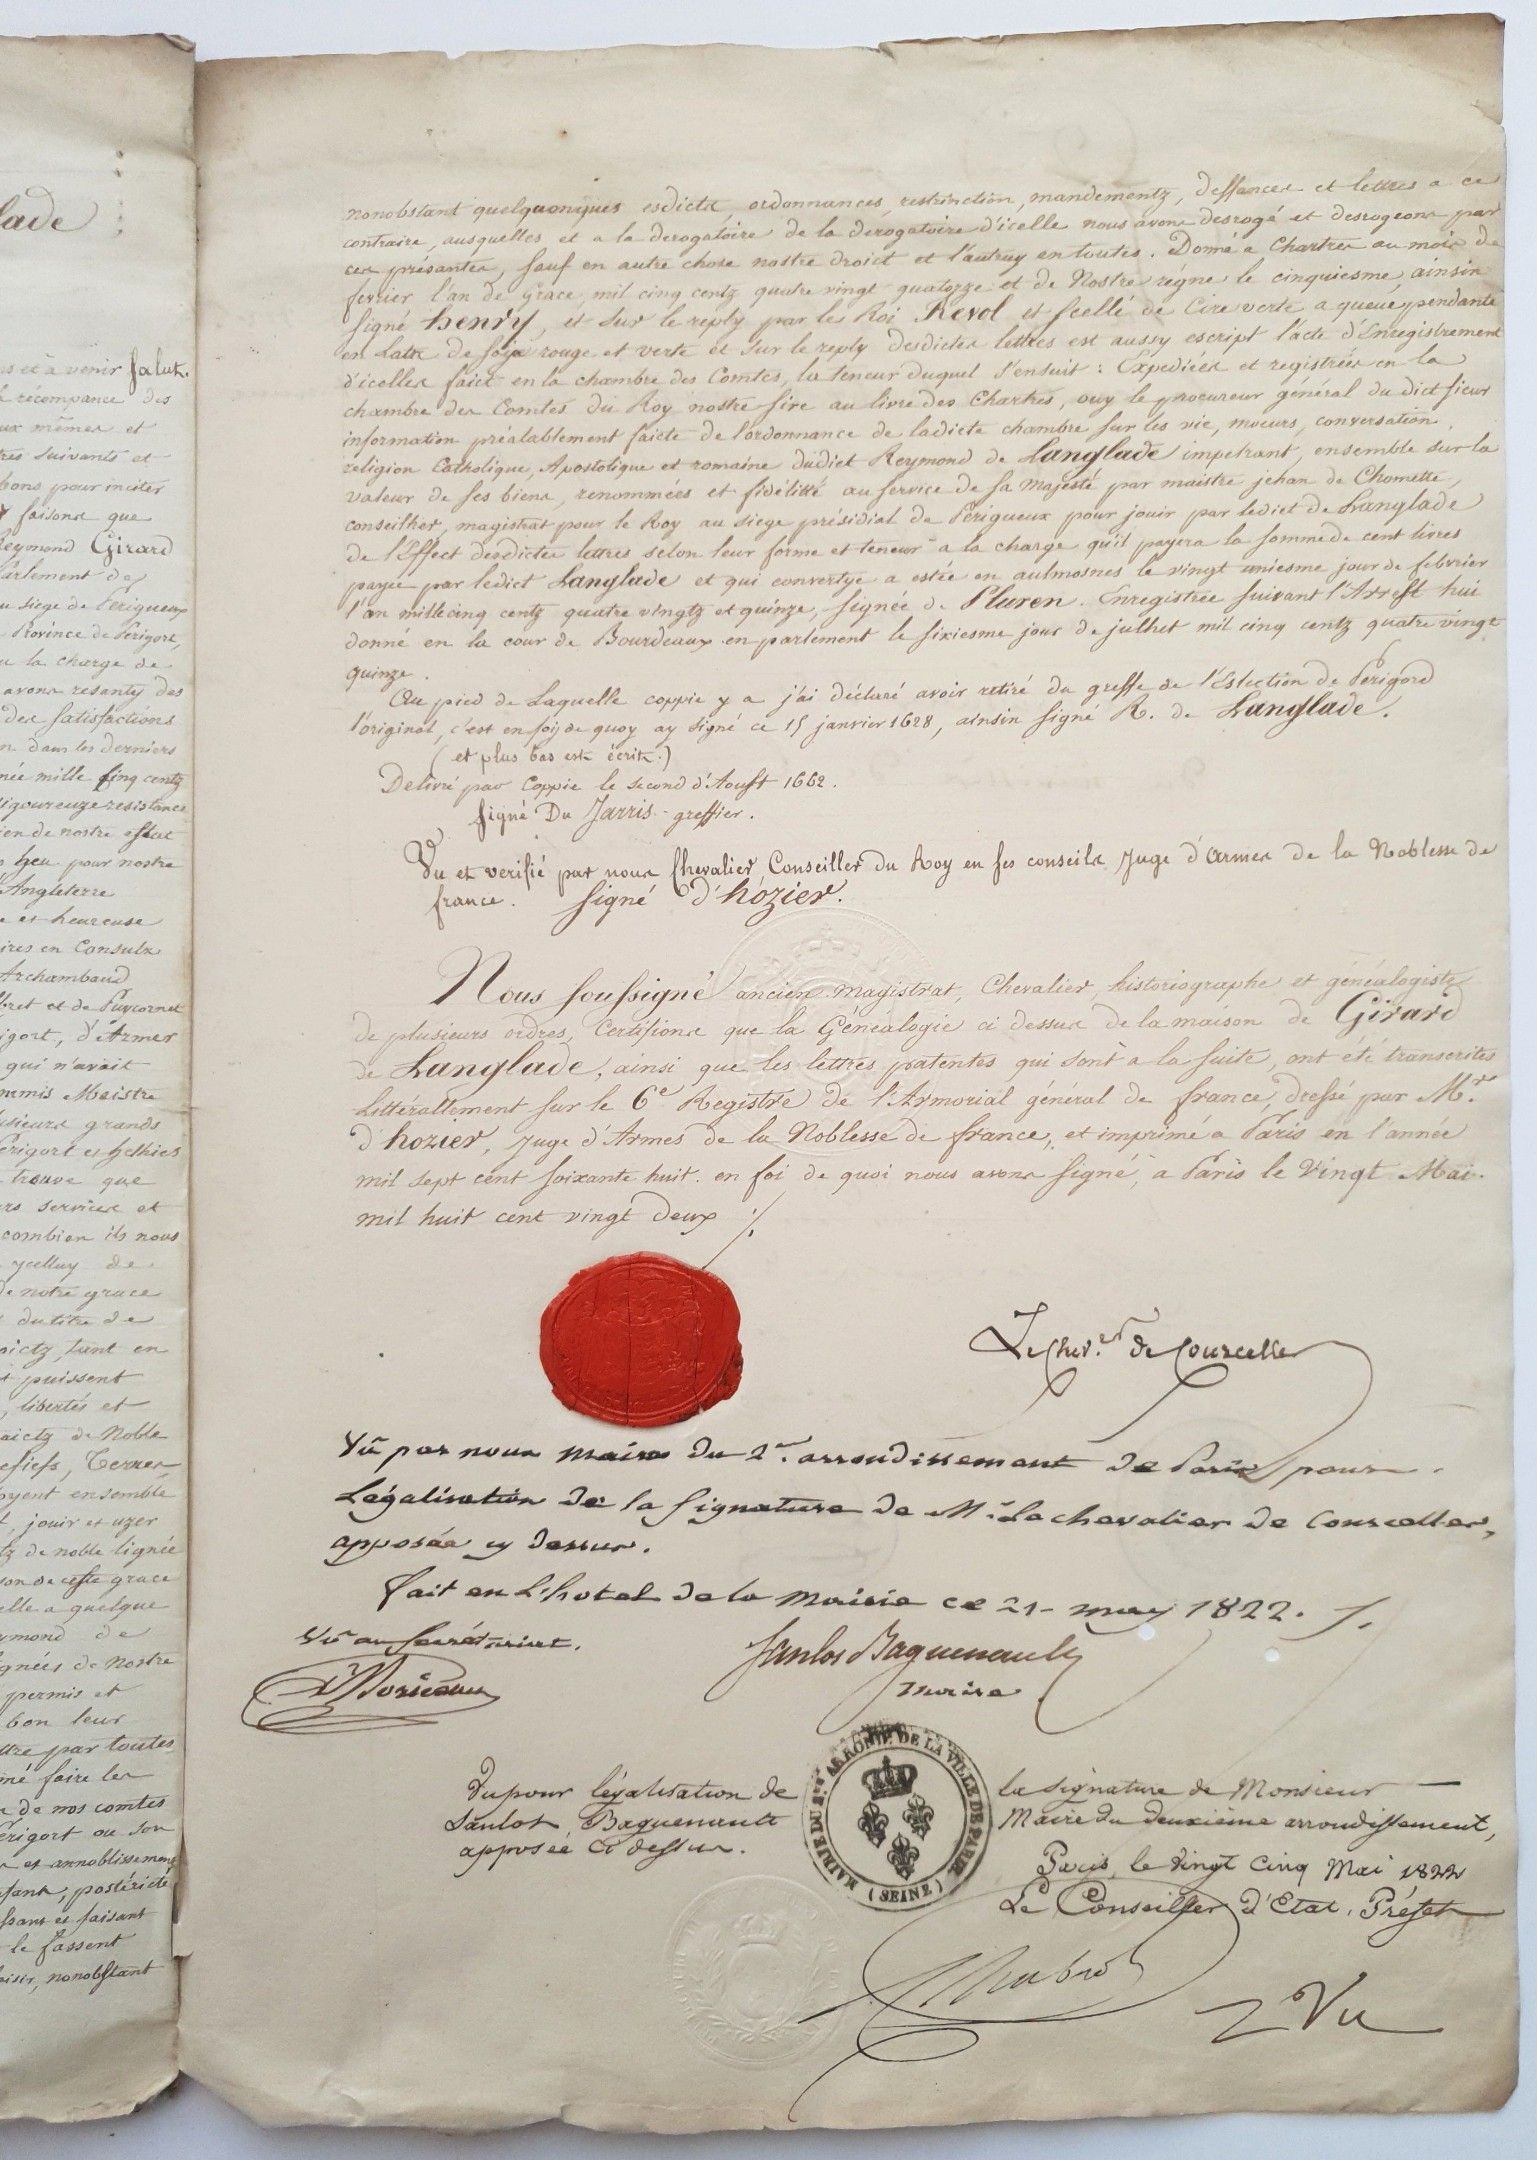 lade
ns et à venir salut.
récompance des
ux mêmes et
res suivants et
bons pour inciter
faisons que
Reymond Girard
Parlement de
u siege de Perigueux
Province de Perigort,
u la charge de
avons resanty des
des satisfactions
n dans les derniers
née mille sing centz
vigoureuze resistance
ien de nostre estat
lieu pour nostre
d'Angleterre
e et heureuse
ires en Consuls
Archambaud
bret et de Puycornet
igort, d'Armes
qui n'avait
ommis Maistre
usieurs grands
Perigort es
trouve que
rs services et
combien ils nous
ycelluy de
de notre grace
du titre de
oictz, tant en
puissent
, libertés et
aictz de Noble
efiefs, Terres
oyent ensemble
t, jouir et uzer
tz de noble lignée
son de ceste grace
elle a quelque
ymond de
gnées de Nostre
permis et
bon leur
ttre par toutes
né faire les
n de nos comtes
Perigort ou son
et annoblissement
sant, postérité
ssant et faisant
le fassent
aisir, nonobstant
nonobstant quelquonques esdicts ordonnances, restrinction, mandementz, deffances et lettres a ce
contraire, ausquelles et a la derogatoire de la derogatoire d'icelle nous avons desrogé et desrogeons par
ces présantes, sauf en autre chose nostre droict et l'autruy en toutes. Donné a Chartres au mois de
fevrier l'an de Grace, mil cinq centz quatre vingt quatorze et de Nostre régne le cinquiesme, ainsin
signé henry, et sur le reply par le Roi Revol et scellé de Cire verte a queue pendante
en Latz de soÿe rouge et verte et sur le reply desdictes lettres est aussy escript l'acte d'Enregistrement
d'icelles faict en la chambre des Comtes, la teneur duquel s'ensuit : Expediées et registrées en la
chambre des Comtes du Roy nostre sire au livre des Chartres, ouy le procureur général du dict sieur
information préalablement faicte de l'ordonnance de ladicte chambre sur les vie, moeurs, conversation,
religion Catholique, Apostolique et romaine dudict Reymond de Langlade impetrant, ensemble sur la
valeur de ses biens, renommées et fidelitté au service de sa Majesté par maistre jehan de Chomette,
conseilher, magistrat pour le Roy au siege présidial de Périgueux pour jouir par ledict de Langlade
de l'Effect desdictes lettres selon leur forme et teneur a la charge qu'il payera la somme de cent livres
payée par ledict Langlade et qui convertye a estée en aulmosnes le vingt uniesme jour de febvrier
l'an mille cinq centz quatre vingtz et quinze, signée de Pluren. Enregistrée suivant l'Arrest hui
donné en la cour de Bourdeaux en parlement le sixiesme jour de julhet mil cinq centz quatre vingt
quinze.
Au pied de Laquelle coppie y a j'ai déclaré avoir retiré du greffe de l'Eslection de Périgord
l'original, c'est en foy de quoy ay signé ce 15 janvier 1628, ainsin signé R. de Langlade.
(et plus bas est écrit.)
Delivré par Coppie le second d'Aoust 1662.
signé Du Jarris - greffier.
Vu et verifié par nous Chevalier, Conseiller du Roy en ses conseils Juge d'armes de la Noblesse de
france. Signé d'hozier.
Nous soussigné ancien magistrat, Chevalier, historiographe et généalogiste
de plusieurs ordres, Certifions que la Généalogie ci dessus de la maison de Girard
de Langlade, ainsi que les lettres patentes qui sont a la suite, ont été transcrites
Littérallement sur le 6e Registre de l'Armorial général de france, dressé par Mr.
d'hozier, Juge d'Armes de la Noblesse de france, et imprimé a Paris en l'année
mil sept cent soixante huit. en foi de quoi nous avons signé, a Paris le Vingt Mai.
mil huit cent vingt deux ./.
Le Chev.er de Courcelles
Vu par nous maire du 2e. arrondissement de Paris pour
Légalisation de la signature de Mr. Le chevalier de Courcelles,
apposée cy dessus.
fait en L'hotel de la Mairie ce 21 may 1822. ./.
Vu au Secrétariat.
Sanlot Baguenault
maire
Vu pour légalisation de la signature de Monsieur
Sanlot Baguenault Maire du deuxième arrondissement,
apposée Ci dessus.
Paris, le vingt cinq Mai 1822
Le Conseiller d'Etat, Préfet
MAIRIE DU 2e ARRONDt. DE LA VILLE DE PARIS
(SEINE)
Chabrol
Vu